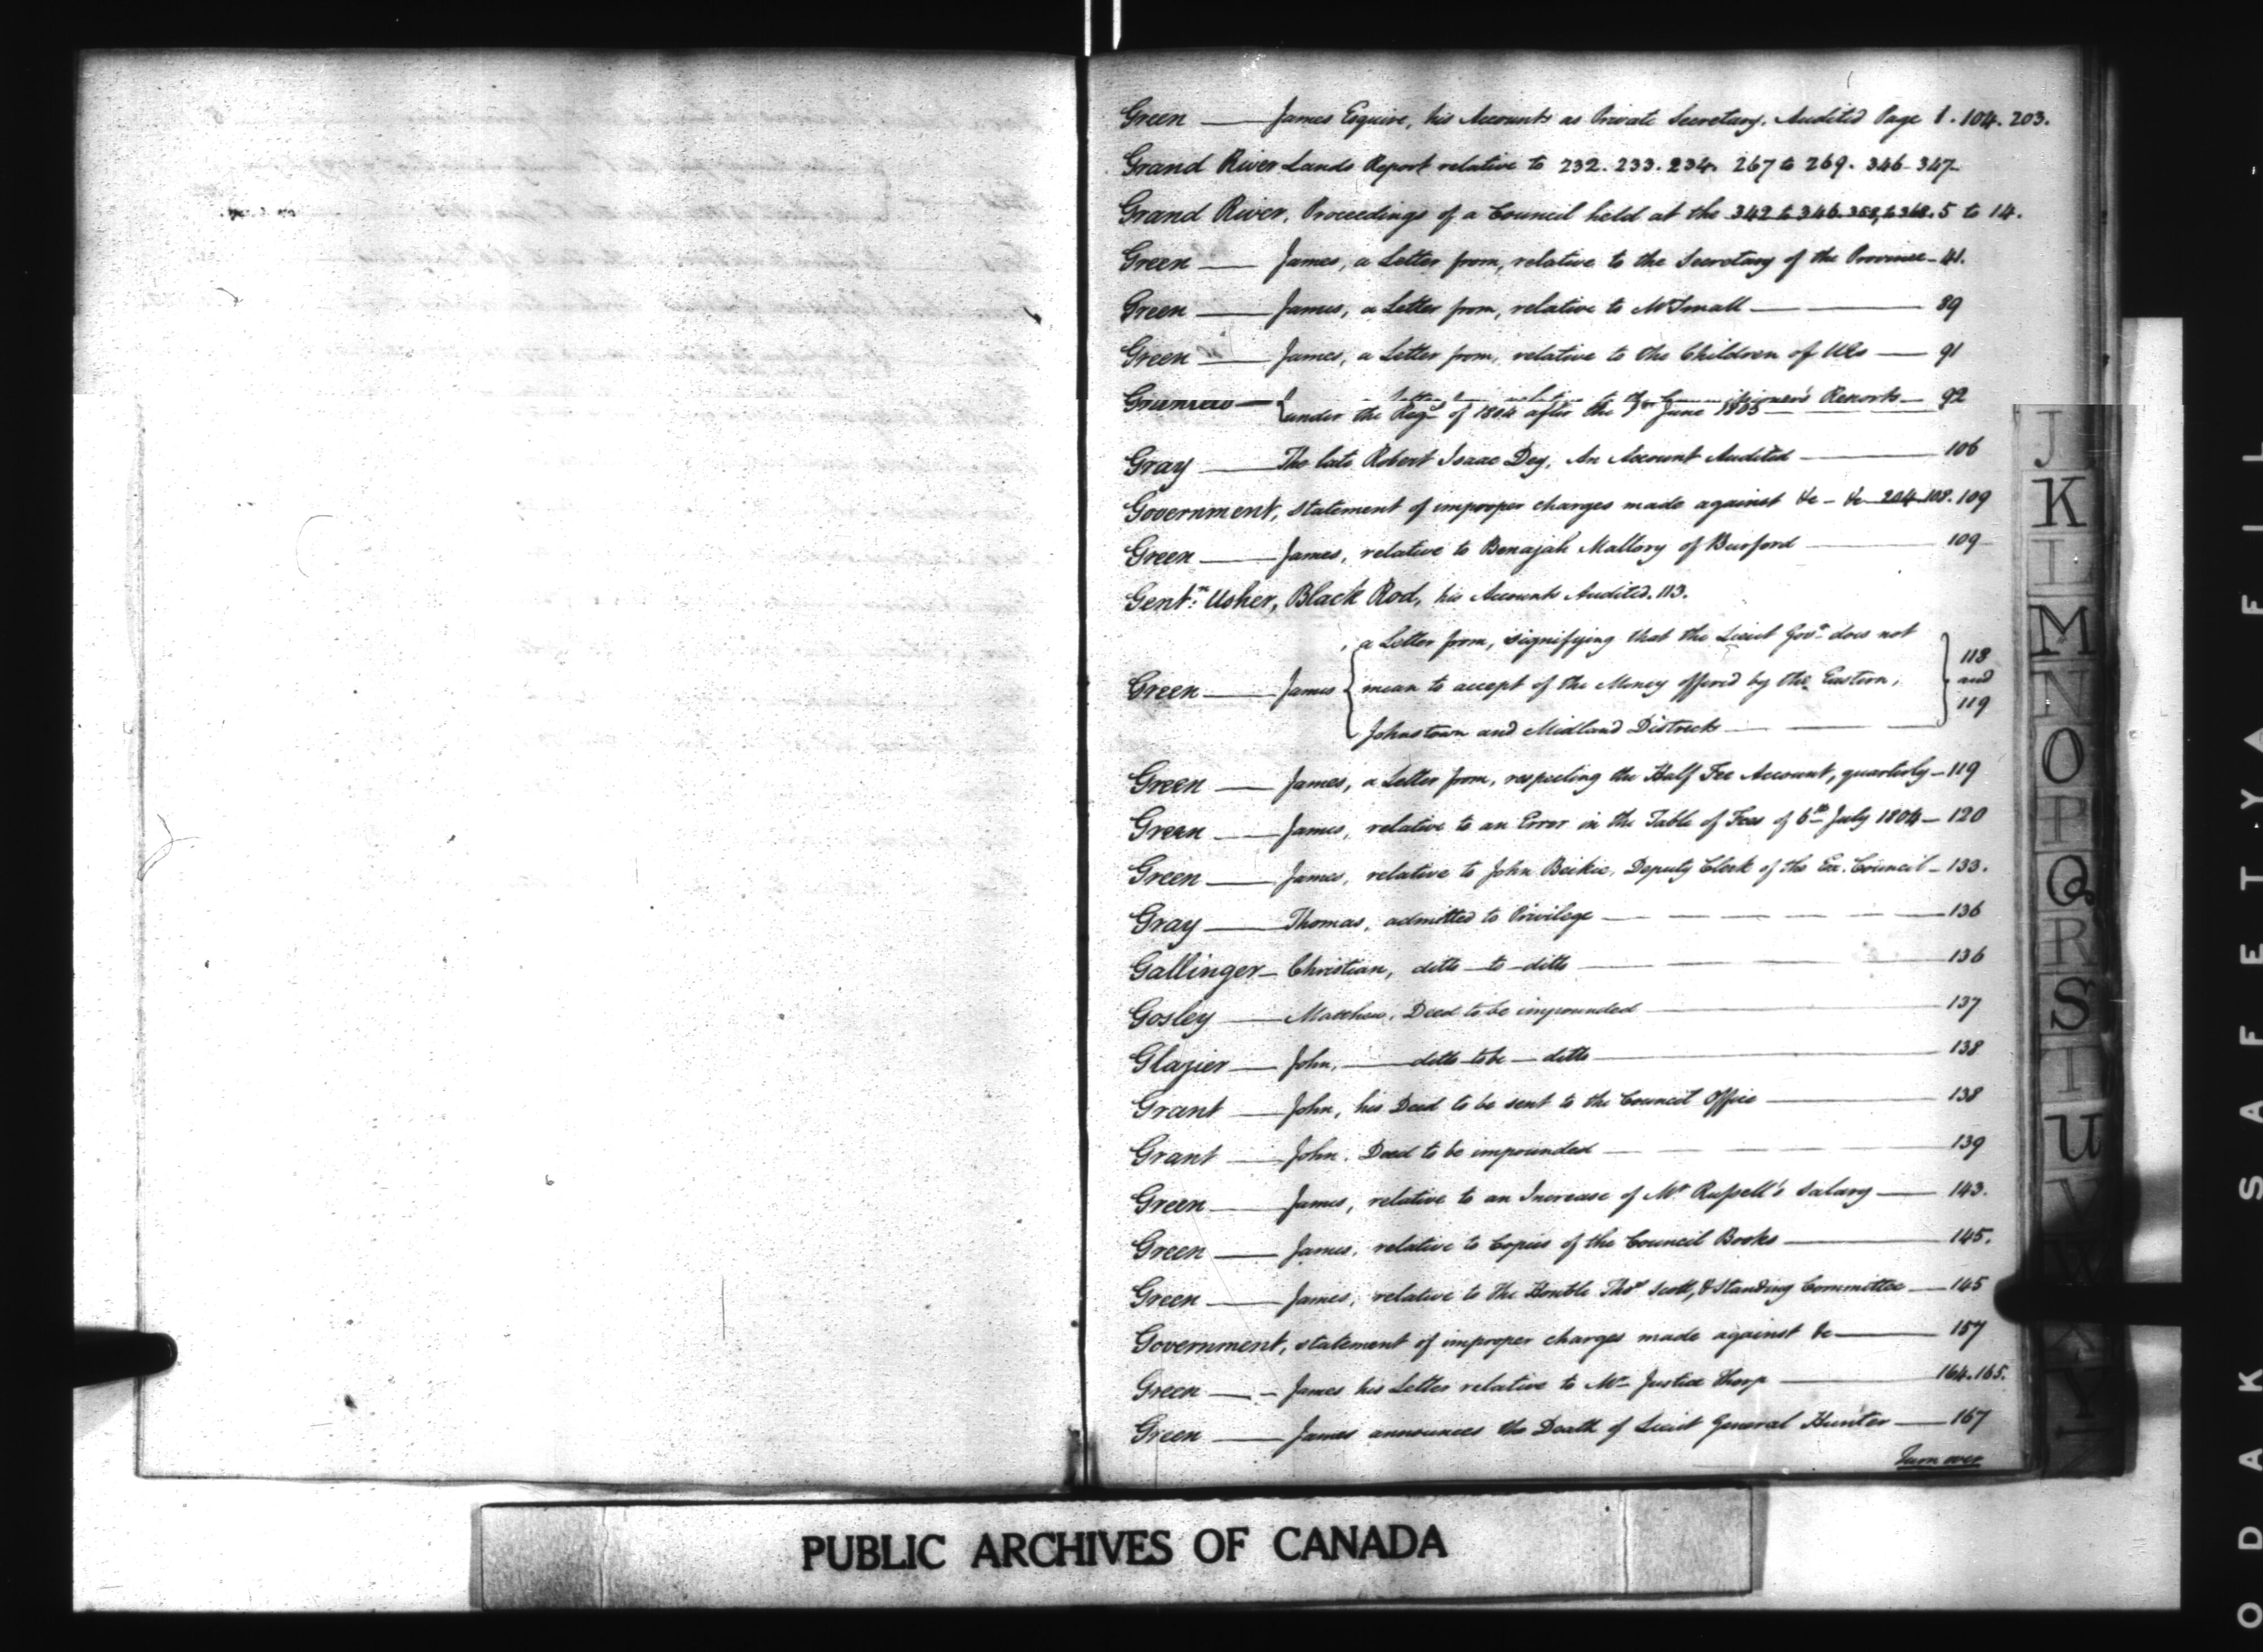 Green — James Esquire, his Accounts as Private Secretary. Audited Page 1. 104. 203.
Grand River Lands Report relative to 232. 233. 234. 267 to 269. 346-347
Grand River, Proceedings of a Council held at the 342 to 346. 358, to 368. 5 to 14.
Green — James, a Letter from, relative to the Secretary of the Province — 41.
Green — James, a Letter from, relative to Mr Small — 89
Green — James, a Letter from, relative to the Children of UEs — 91
Reports — 92
under the Regns of 1804 after the 1st June 1805
Gray — The late Robert Isaac Dey, An Account Audited — 106
Government, statement of improper charges made against &c - &c 204. 108. 109
Green — James, relative to Benajah Mallory of Burford — 109
Gentn: Usher, Black Rod, his Accounts Audited. 113.
a Letter from, signifying that the Lieut Govr does not
Green — James { mean to accept of the Money offered by the Eastern, } 118 and 119
Johnstown and Midland Districts
Green — James, a Letter from, respecting the Half Fee Account, quarterly — 119
Green — James, relative to an Error in the Table of Fees of 6th July 1804 — 120
Green — James, relative to John Beikie, Deputy Clerk of the Ex. Council — 133.
Gray — Thomas, admitted to Privilege — 136
Gallinger — Christian, ditto to ditto — 136
Gosley — Matthew, Deed to be impounded — 137
Glazier — John, — ditto to be — ditto — 138
Grant — John, his Deed to be sent to the Council Office — 138
Grant — John. Deed to be impounded — 139
Green — James, relative to an Increase of Mr Russell's Salary — 143.
Green — James, relative to Copies of the Council Books — 145.
Green — James, relative to The Honble Thos Scott, & Standing Committee — 145
Government, statement of improper charges made against &c — 157
Green — James his Letter relative to Mr Justice Thorp — 164. 165.
Green — James announces the Death of Lieut General Hunter — 167
Turn over
J
K
L
M
N
O
P
Q
R
S
T
U
V
W
X
Y
Z
PUBLIC ARCHIVES OF CANADA
ODAK SAFETY FIL